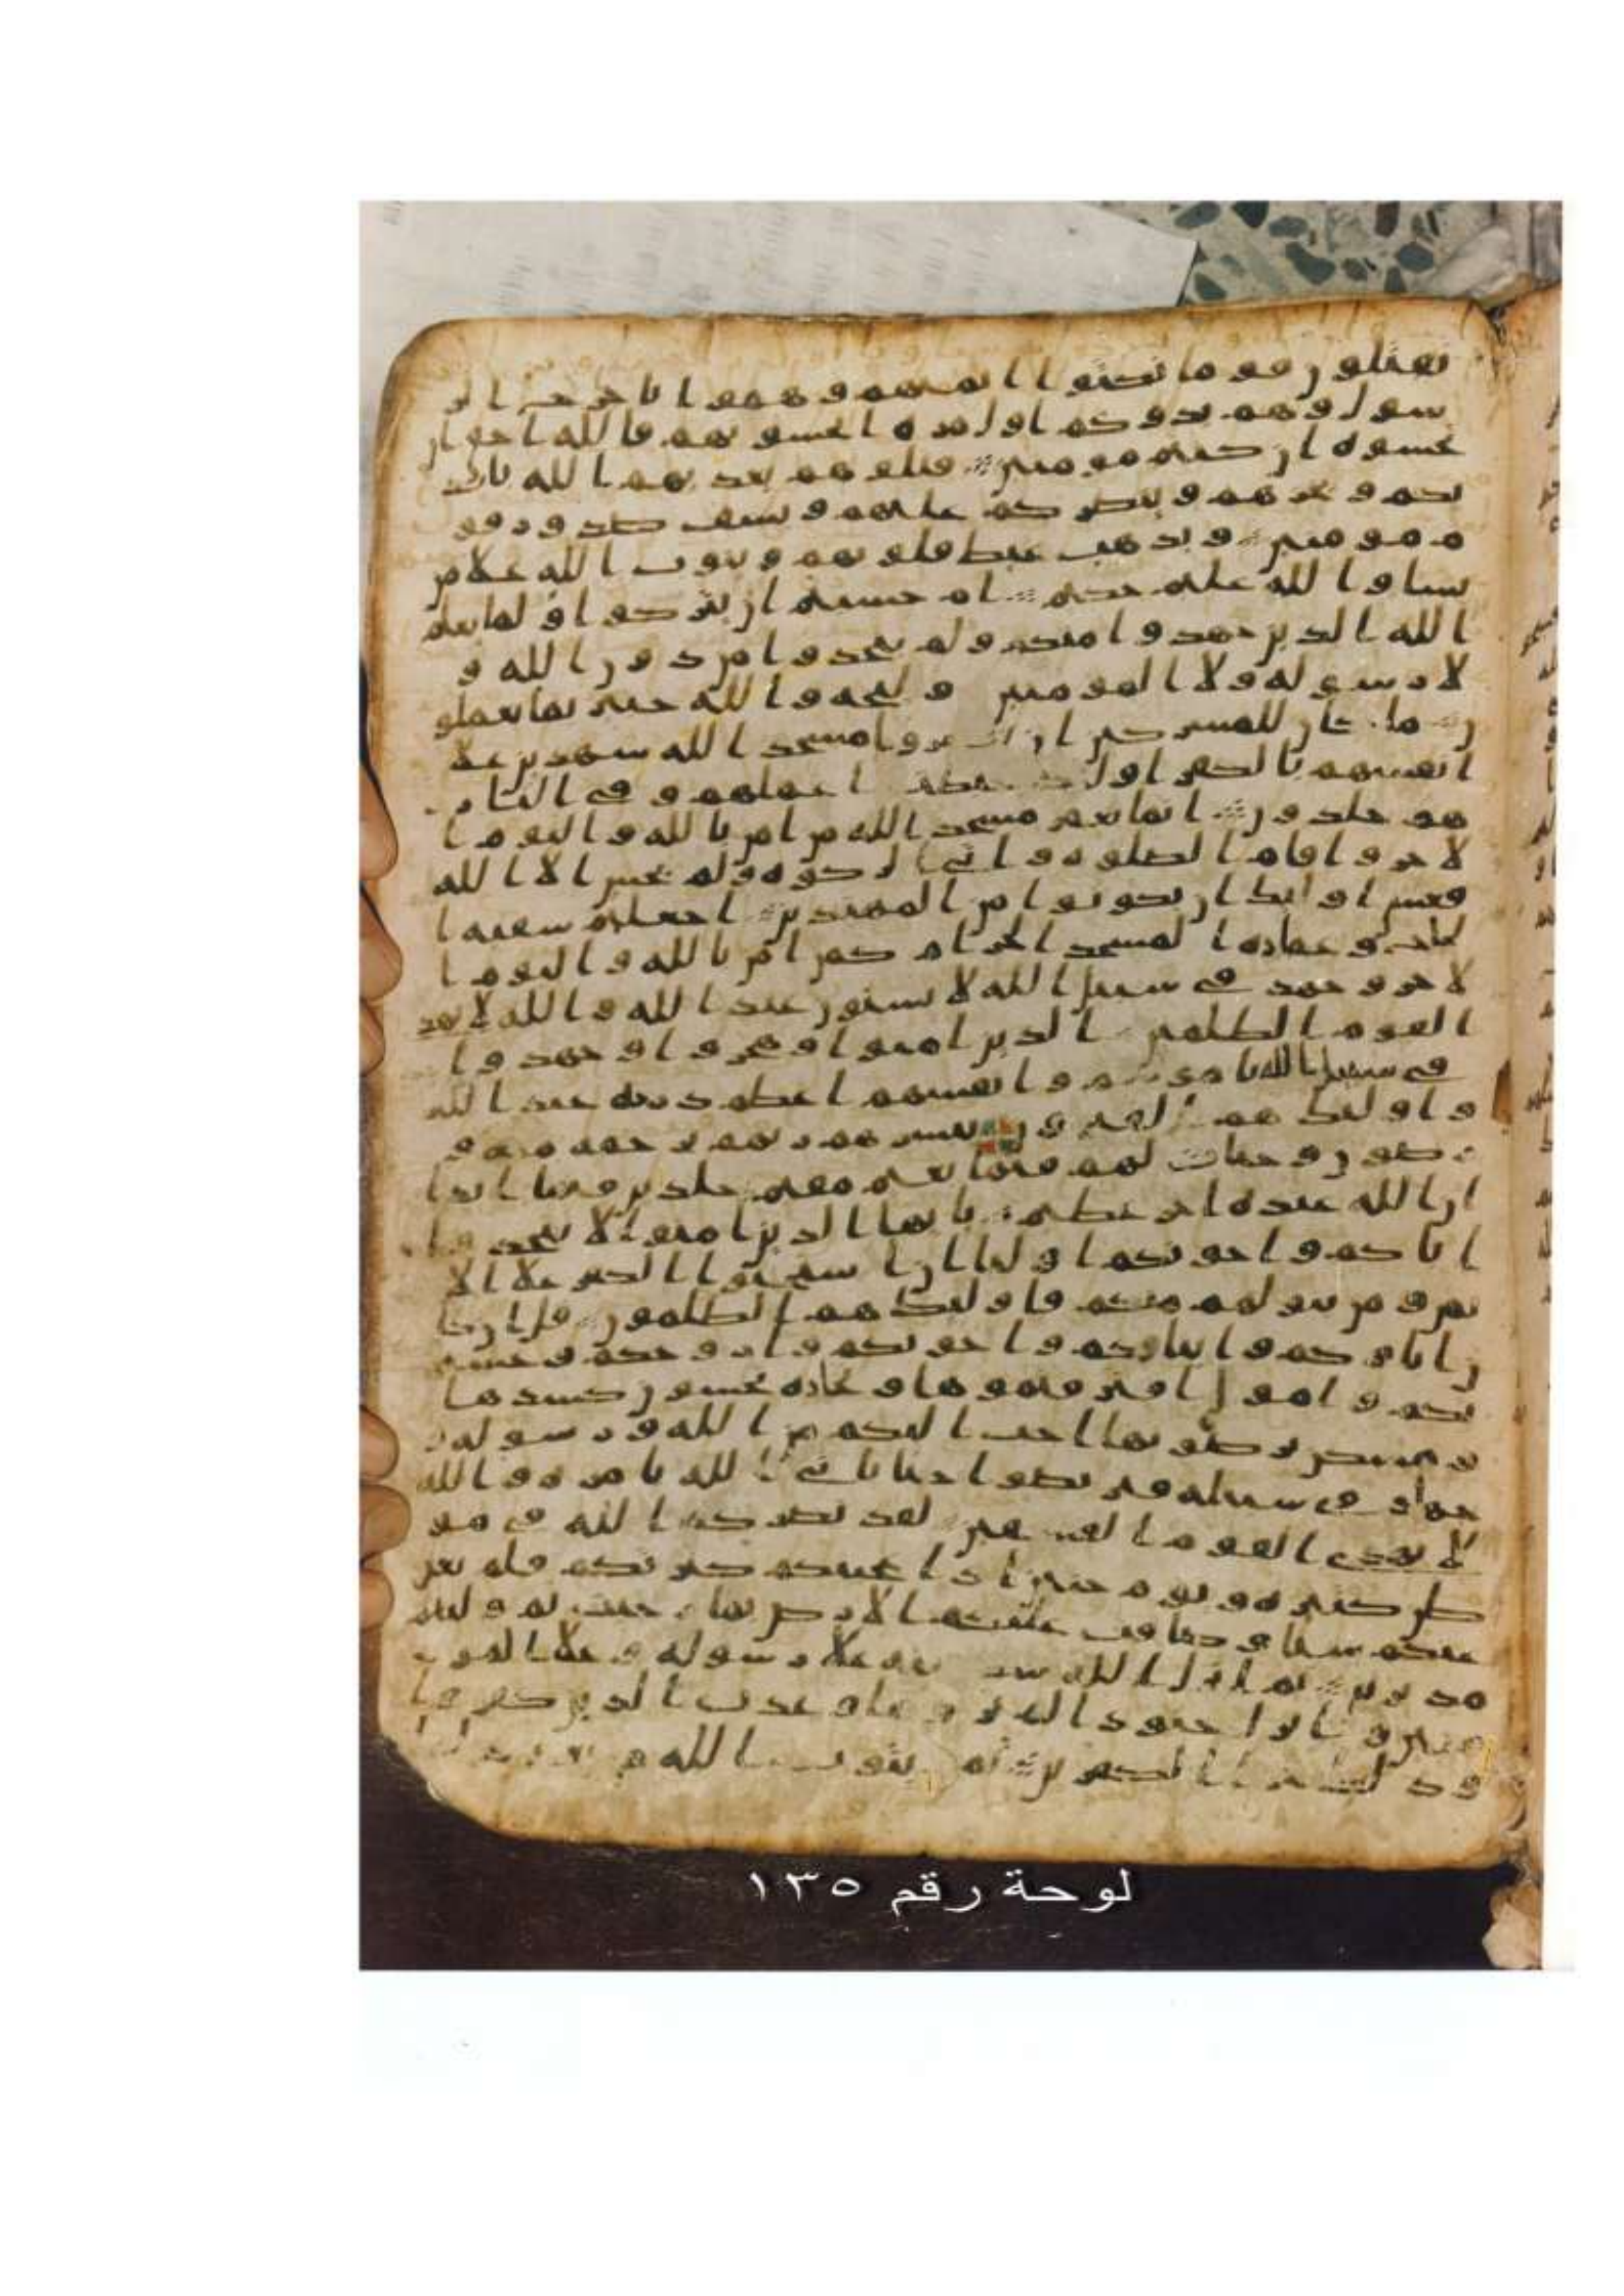 تقتلون قوما نكثوا ايمنهم وهموا باخرج الر
سول وهم بدوكم اول مرة اتخشونهم فالله احق ان
تخشوه ان كنتم مومنين قتلوهم يعذبهم الله بايد
يكم ويخزهم وينصركم عليهم ويشف صدور قو
م مومنين ويذهب غيظ قلوبهم ويتوب الله علا من
يشا والله عليم حكيم ام حسبتم ان تتركوا ولما يعلم
الله الذين جهدوا منكم ولم يتخذوا من دون الله و
لا رسوله ولا المومنين وليجه والله خبير بما تعملو
ن ما كان للمشركين ان يعمروا مسجد الله شهدين علا
انفسهم بالكفر اوليك حبطت اعملهم وفي النار
هم خلدون انما يعمر مسجد الله من امن بالله واليوم ا
لاخر واقام الصلوه واتى الزكوه ولم يخش الا الله
فعسى اوليك ان يكونوا من المهتدين اجعلتم سقيه ا
لحاج وعماره المسجد الحرام كمن امن بالله واليوم ا
لاخر وجهد في سبيل الله لا يستون عند الله والله لا يهد
القوم الظلمين الذين امنوا وهجروا وجهدوا
في سبيل الله بامولهم وانفسهم اعظم درجه عند الله
واوليك هم الفيزون يبشرهم ربهم برحمه منه و
رضون وجنات لهم فيها نعيم مقيم خلدين فيها ابدا
ان الله عنده اجر عظيم يايها الذين امنوا لا تتخذوا
اباكم واخونكم اوليا ان استحبوا الكفر علا الا
يمن ومن يتولهم منكم فاوليك هم الظلمون قل ان كا
ن اباوكم وابناوكم واخونكم وازوجكم وعشير
تكم وامول اقترفتموها وتجاره تخشون كسدها
ومسكن ترضونها احب اليكم من الله ورسوله و
جهاد في سبيله فتربصوا حتا ياتي الله بامره والله
لا يهدي القوم الفسقين لقد نصركم الله في مو
طن كثيره ويوم حنين اذ اعجبتكم كثرتكم فلم تغن
عنكم شيا وضاقت عليكم الارض بما رحبت ثم وليتم
مدبرين ثم انزل الله سكينته علا رسوله وعلا المو
منين وانزل جنودا لم تروها وعذب الذين كفروا
وذلك جزا الكفرين ثم يتوب الله من بعد ذلك
لوحة رقم ١٣٥